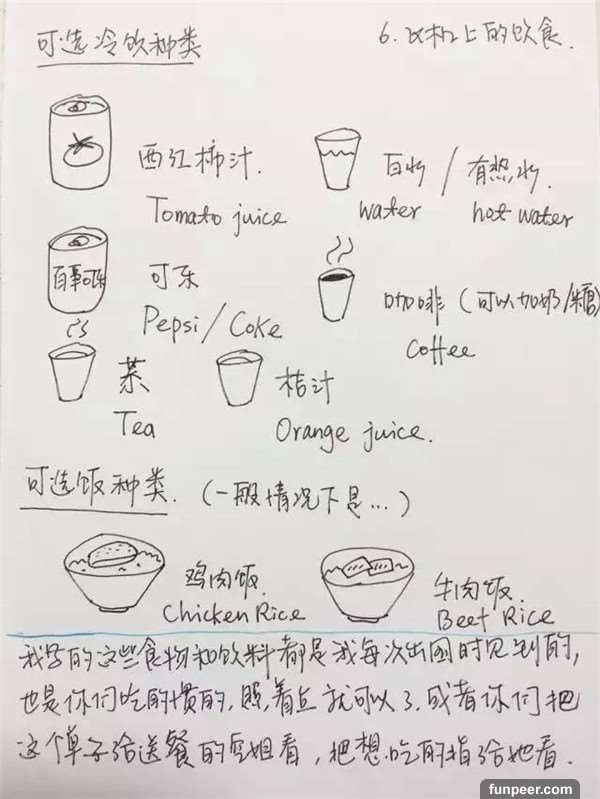 可选冷饮种类
6. 飞机上的饮食.
西红柿汁.
Tomato juice
白水 / 有热水.
water
hot water
百事可乐
可乐
Pepsi/Coke
咖啡 (可以加奶/糖)
Coffee
茶
Tea
桔汁
Orange juice.
可选饭种类. (一般情况下是...)
鸡肉饭.
Chicken Rice
牛肉饭.
Beef Rice
我写的这些食物和饮料都是我每次出国时见到的,
也是你们吃的惯的, 照着点就可以了. 或者你们把
这个单子给送餐的空姐看, 把想吃的指给她看.
funpeer.com